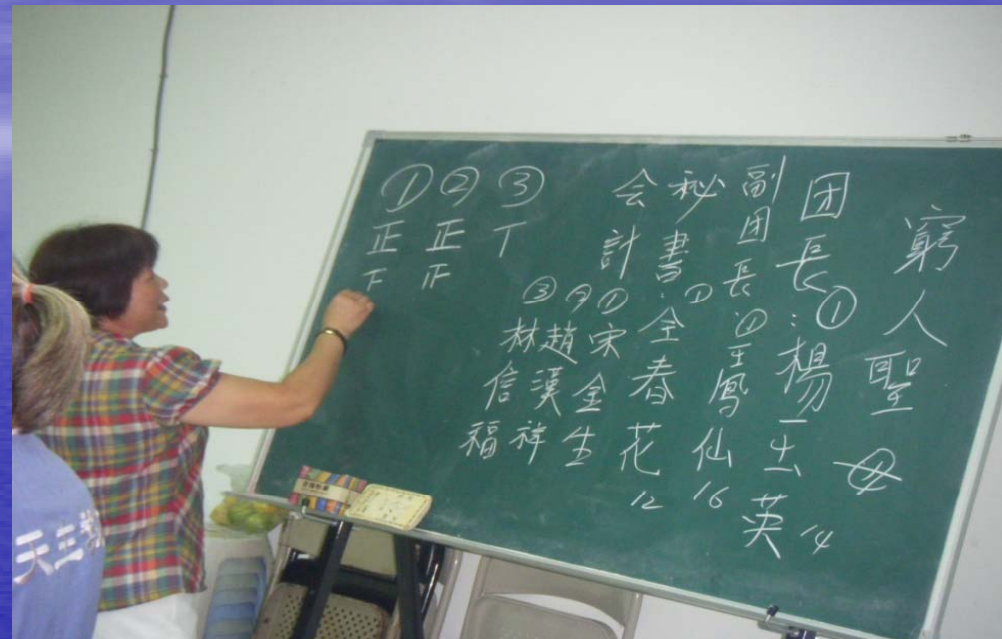 窮人聖母
团長：①楊玉英 14
副团長：①王鳳仙 16
秘書：①全春花 12
会計
①宋金生
②趙漢祥
③林信福
③ 丅
② 正 正
① 正 下
天主教